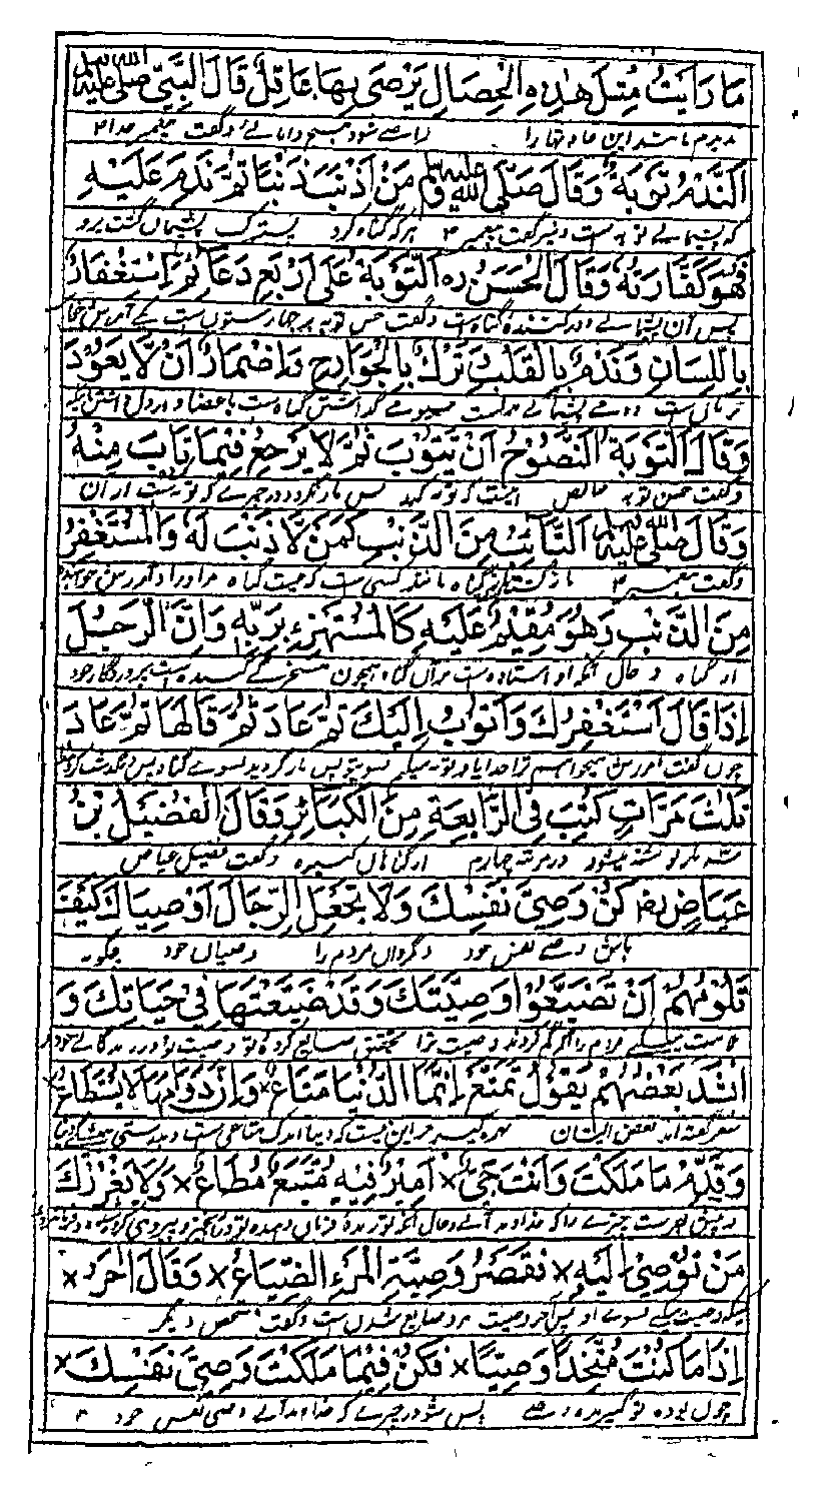 مَا رَاَيْتُ مِثْلَ هٰذِهِ الْخِصَالِ يَرْضَى بِهَا عَاقِلٌ قَالَ النَّبِيُّ صلى الله عليه وسلم
ندیدم مانند این عادتها را راضی شود بہیچ دانائی و گفت پیغمبر خدا
اَلنَّدَمُ تَوْبَةٌ وَقَالَ صَلَّى اللّٰهُ عليه وسلم مَنْ اَذْنَبَ ذَنْبًا ثُمَّ نَدِمَ عَلَيْهِ
که پشیمانی توبه است و نیز گفت پیغمبر هر که گناه کرد پستر پشیمان گشت برو
فَهُوَ كَفَّارَتُهُ وَقَالَ الْحَسَنُ رہ اَلتَّوْبَةُ عَلٰى اَرْبَعِ دَعَائِمَ اِسْتِغْفَارٌ
پس آن پشیمانی دور کننده گناه است و گفت حسن توبه بر چهار ستون است یکی آمرزش
بِاللِّسَانِ وَنَدَمٌ بِالْقَلْبِ تَرْكٌ بِالْجَوَارِحِ وَاِضْمَارٌ اَنْ لَّا يَعُوْدَ
بزبان است پشیمانی گذاشتن گناه است باعضا
وَقَالَ اَلتَّوْبَةُ النَّصُوْحُ اَنْ يَتُوْبَ ثُمَّ لَا يَرْجِعُ فِيْمَا تَابَ مِنْهُ
و گفت حسن توبه خالص اینست که توبه کند پس باز نگردد در چیزی که توبه است از آن
وَقَالَ صلى الله عليه وسلم اَلتَّائِبُ مِنَ الذَّنْبِ كَمَنْ لَّا ذَنْبَ لَهٗ وَالْمُسْتَغْفِرُ
و گفت پیغمبر گناه مانند کسی است که نیست گناه مر او را و آمرزش
مِنَ الذَّنْبِ وَهُوَ مُقِيْمٌ عَلَيْهِ كَالْمُسْتَهْزِءِ بِرَبِّهٖ وَاِنَّ الرَّجُلَ
از گناه و حال آنکه او استاده است بران گناه همچون کننده است بپروردگار خود
اِذَا قَالَ اَسْتَغْفِرُكَ وَاَتُوْبُ اِلَيْكَ ثُمَّ عَادَ ثُمَّ قَالَهَا ثُمَّ عَادَ
چون گفت آمرزش میخواهم ترا خدایا و توبه میکنم بسوی تو پس باز گردید بسوی گناه
ثَلٰثَ مَرَّاتٍ كُتِبَ فِى الرَّابِعَةِ مِنَ الْكَبَائِرِ وَقَالَ الْفُضَيْلُ بْنُ
سه بار نوشته میشود در مرتبه چهارم از گناهان کبیره و گفت فضیل عیاض
عِيَاضٍ رض كُنْ وَصِىَّ نَفْسِكَ وَلَا تَجْعَلِ الرِّجَالَ اَوْصِيَاءَكَ كَيْفَ
باش وصی نفس خود و مگردان مردم را وصیان خود چگونه
تَلُوْمُهُمْ اَنْ تُضَيِّعُوْا وَصِيَّتَكَ وَقَدْ ضَيَّعْتَهَا فِىْ حَيَاتِكَ وَ
ملامت میکنی مردم را اگر گم کردند وصیت ترا بتحقیق ضایع کردی تو وصیت تو در زندگانی خود
اَنْشَدَ بَعْضُهُمْ يَقُوْلُ تَمَتَّعْ اِنَّمَا الدُّنْيَا مَتَاعٌ × وَاِنَّ دَوَامَهَا لَا يُسْتَطَاعُ
شعر گفته اند بعض ایشان بهره گیر جز این نیست که دنیا اندک متاعی است
وَقَدِّمْ مَا مَلَكْتَ وَاَنْتَ حَىٌّ × اَمِيْرٌ فِيْهِ مُتَّبَعٌ مُطَاعٌ × وَلَا يَغْرُرْكَ
و پیش بفرست چیزی را که
مَنْ تُوْصِىْ اِلَيْهِ × فَقَصْرُ وَصِيَّةِ الْمَرْءِ الضِّيَاعُ × وَقَالَ اٰخَرُ ×
وصیت میکنی بسوی او پس آخر وصیت مرد ضایع شدن است و گفت شخص دیگر
اِذَا مَا كُنْتَ مُتَّخِذًا وَصِيًّا × فَكُنْ فِيْمَا مَلَكْتَ وَصِىَّ نَفْسِكَ ×
چون بوده تو گیرنده وصی پس شو در چیزی که وصی نفس خود